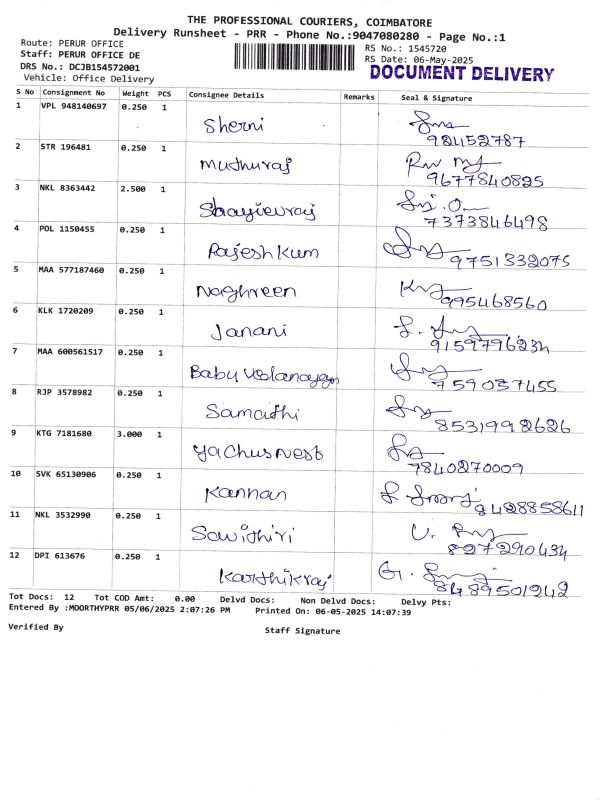 THE PROFESSIONAL COURIERS, COIMBATORE
Delivery Runsheet - PRR - Phone No.:9047080280 - Page No.:1
Route: PERUR OFFICE
RS No.: 1545720
Staff: PERUR OFFICE DE
RS Date: 06-May-2025
DRS No.: DCJB154572001
DOCUMENT DELIVERY
Vehicle: Office Delivery
S No Consignment No Weight PCS Consignee Details Remarks Seal & Signature
1 VPL 948140697 0.250 1 Sherni
92452787
2 STR 196481 0.250 1 Muthuraj
9677840825
3 NKL 8363442 2.500 1
7373846498
4 POL 1150455 0.250 1 Rajesh Kum
9751332075
5 MAA 577187460 0.250 1 Naghreen
995468560
6 KLK 1720209 0.250 1 Janani
9159796234
7 MAA 600561517 0.250 1 Babu
759037455
8 RJP 3578982 0.250 1 Samaithi
8531992626
9 KTG 7181680 3.000 1 Yachusnest
9840270009
10 SVK 65130906 0.250 1 Kannan
9428858611
11 NKL 3532990 0.250 1 Savithiri
827290434
12 DPI 613676 0.250 1 Karthikraj
8489501242
Tot Docs: 12 Tot COD Amt: 0.00 Delvd Docs: Non Delvd Docs: Delvy Pts:
Entered By :MOORTHYPRR 05/06/2025 2:07:26 PM Printed On: 06-05-2025 14:07:39
Verified By
Staff Signature